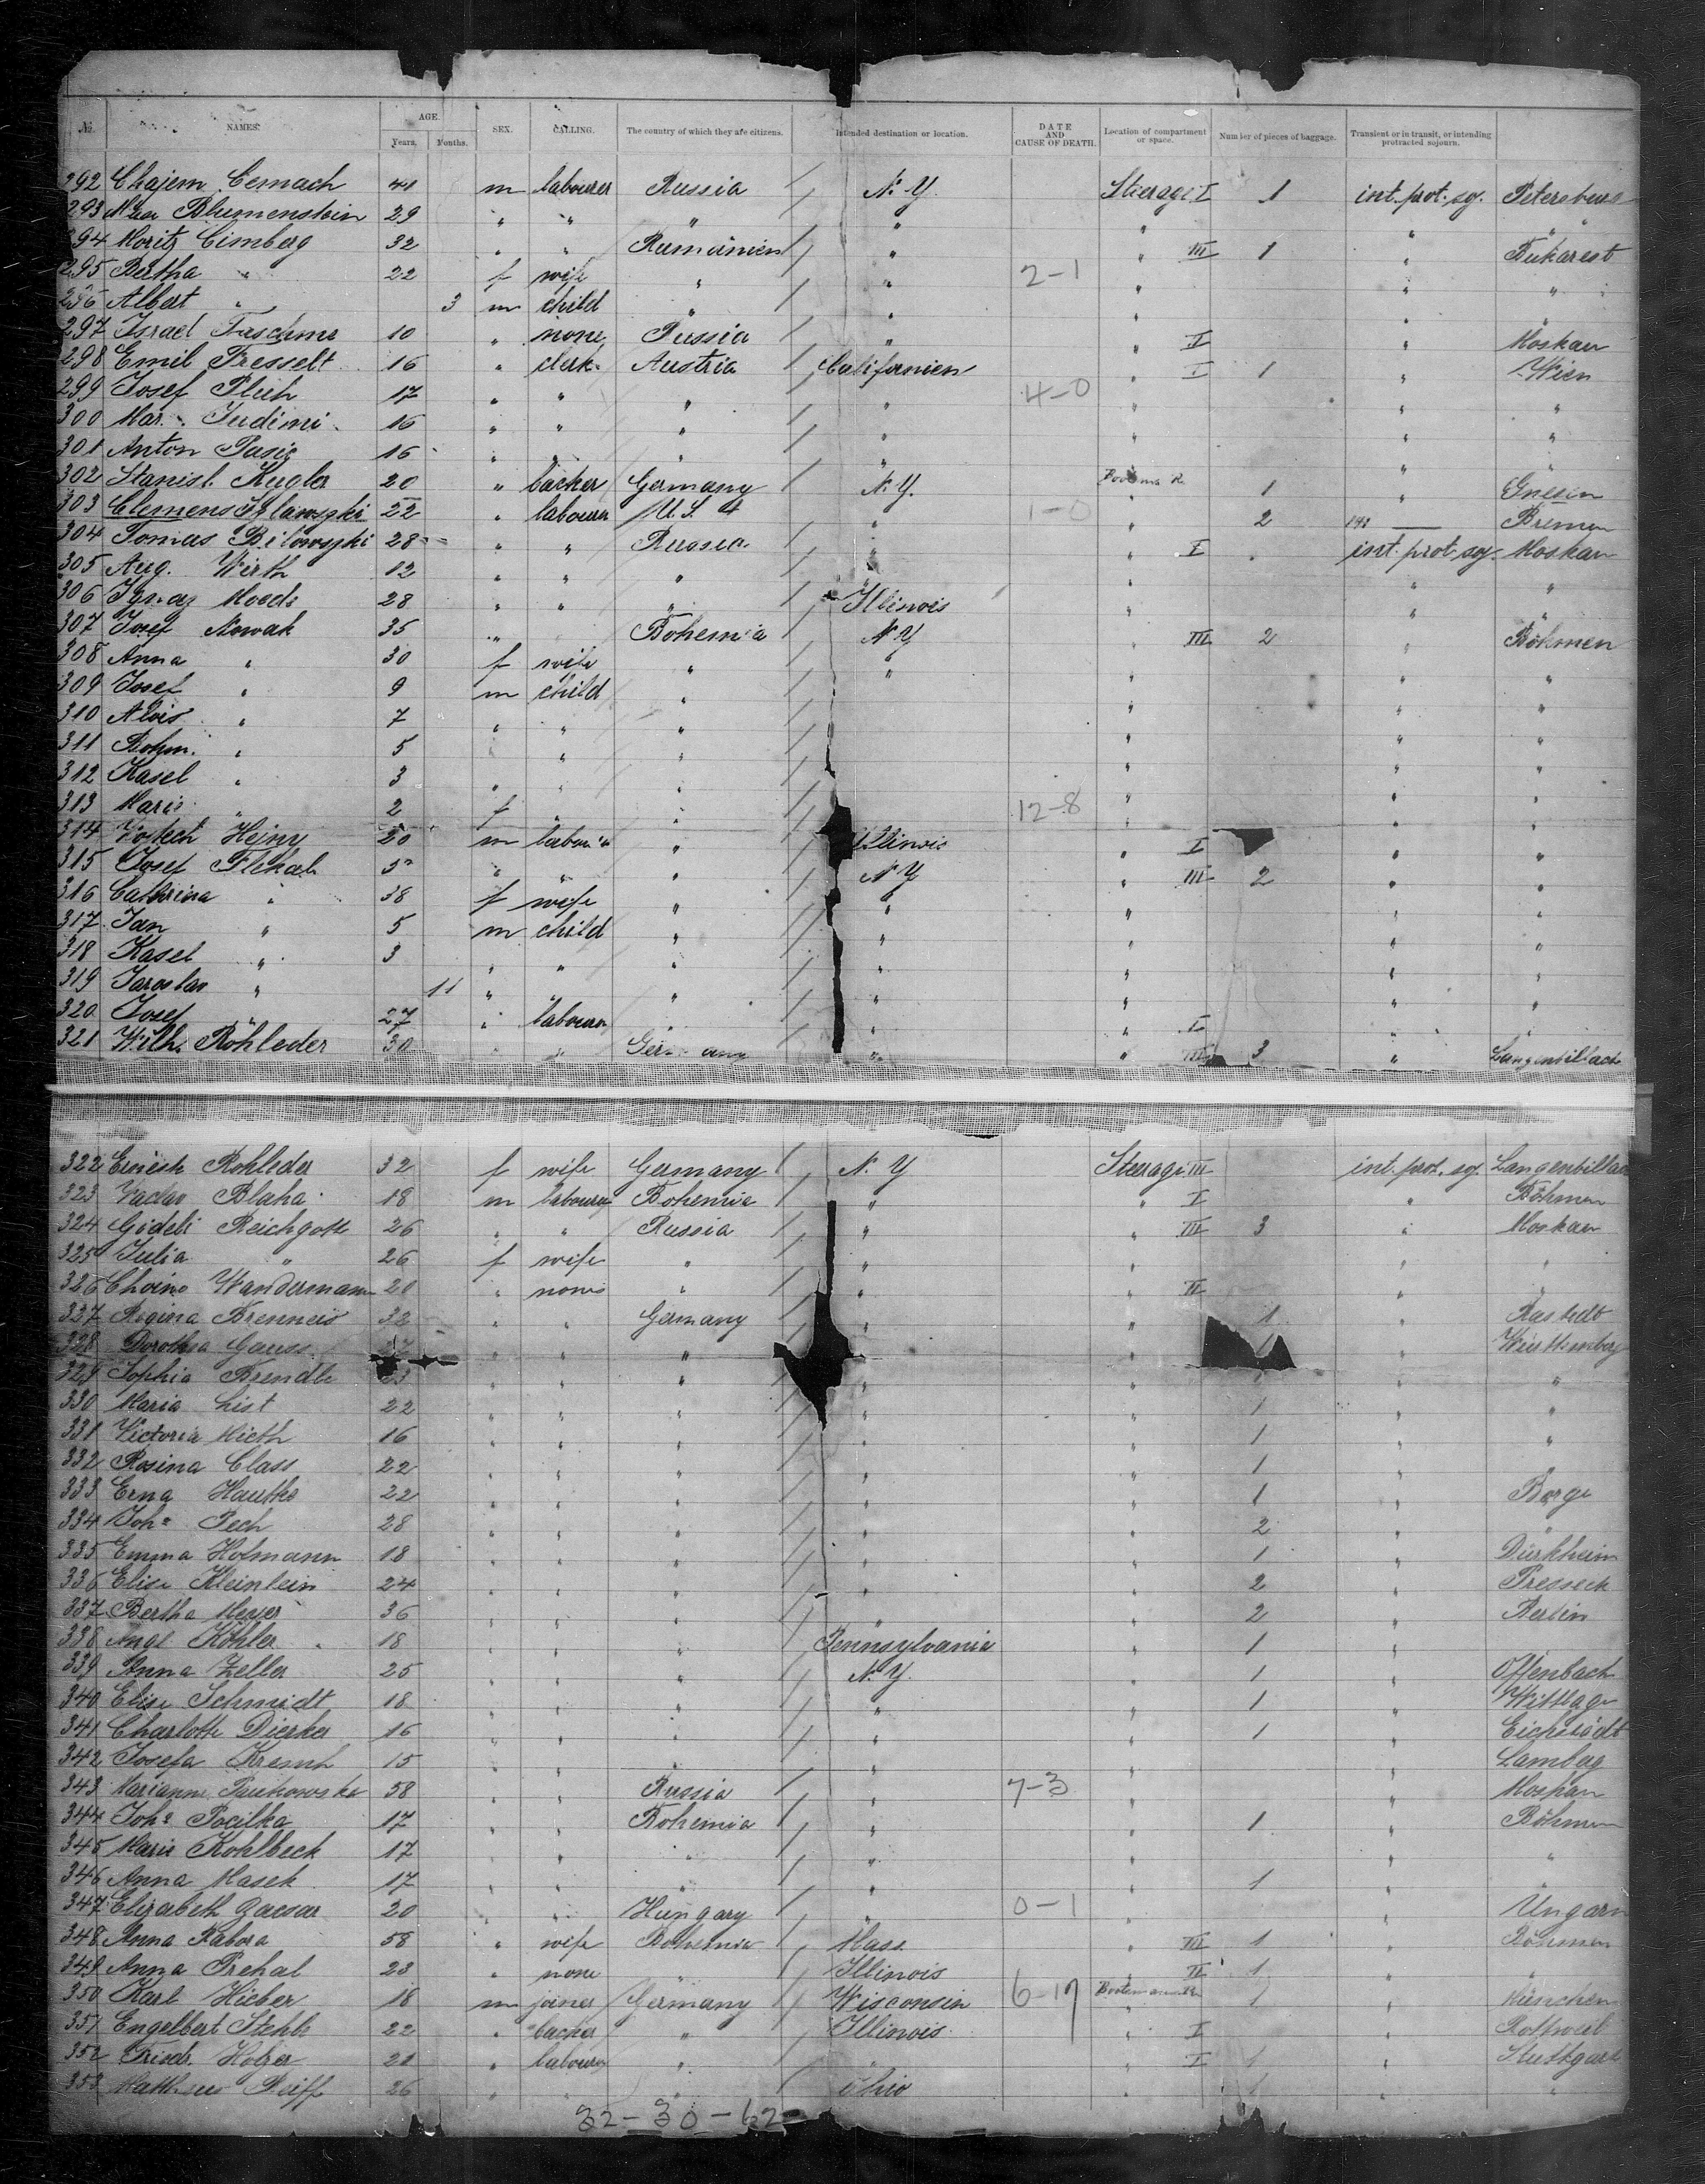 No. NAMES. AGE. Years. Months. SEX. CALLING. The country of which they are citizens. Intended destination or location. DATE AND CAUSE OF DEATH. Location of compartment or space. Number of pieces of baggage. Transient or in transit, or intending protracted sojourn.
292 Chajem Cemach 41 m labourer Russia N. Y. Steerage I 1 int. prot. soj. Petersburg
293 Blumenstein 29 " " " " " " "
294 Moritz Cimberg 32 " " Rumänien " " III 1 " Bukarest
295 Bertha " 22 f wife " " 2-1 " " "
296 Albert " 3 m child " " " " "
297 Israel 10 " none Russia " " II " Moskau
298 Emil Tresselt 16 " clerk Austria Californien " I 1 " Wien
299 Josef 17 " " " " 4-0 " " "
300 Mar. Judini 16 " " " " " " "
301 Anton Pasic 16 " " " " " " "
302 Stanisl. Kugler 20 " backer Germany N. Y. 1 " Gnesen
303 Clemens 22 " labourer U.S. " 1-0 " 2 Bremen
304 Tomas Bilowszki 28 " " Russia " " I int. prot. soj. Moskau
305 Aug. Wirth 12 " " " " " " "
306 Ignaz 28 " " " Illinois " " "
307 Josef Nowak 35 " Bohemia N. Y " III 2 " Böhmen
308 Anna " 30 f wife " " " " "
309 Josef " 9 m child " " " "
310 Alois " 7 " " " " " "
311 Bohm. " 5 " " " " "
312 Kasel " 3 " " " " " "
313 Marie " 2 f " " 12-8 " " "
314 Vojtech Hejny 20 m labourer " Illinois " I " "
315 Josef " " " N Y " III 2 " "
316 Cathrina " 38 f wife " " " " "
317 Jan " 5 m child " " " " "
318 Kasel " 3 " " " " " " "
319 Jaroslav " 11 " " " " " " "
320 Josef " 27 " labourer " " I " "
321 Wilh. Röhleder 30 " " Germany " " III 3 " Langenbillach
322 Rohleder 32 f wife Germany N. Y Steerage III int. prot. soj. Langenbillach
323 Vaclav Blaha 18 m labourer Bohemia " " I " Böhmen
324 Gödeli Reichgott 26 " " Russia " " III 3 " Moskau
325 Julia " 26 f wife " " " " "
326 Wandermann 20 " none " " " II " "
327 Regina Brenneis 32 " " Germany " " 1 " Rastedt
328 Dorothea Gauss " " " " " " Württemberg
329 Sophia Brendle 23 " " " " " " "
330 Maria List 22 " " " " " 1 " "
331 Victoria Hieth 16 " " " " " 1 " "
332 Rosina Class 22 " " " " " 1 "
333 Erna Hautke 22 " " " " " 1 " Berge
334 Joh. Pech 28 " " " " " 2 " "
335 Emma Hofmann 18 " " " " " 1 " Dürkheim
336 Elise Kleinlein 24 " " " " " 2 " Presseck
337 Bertha Meyer 36 " " " " " 2 " Berlin
338 Köhler 18 " " " Pennsylvania " 1 " "
339 Anna Zeller 25 " " " N. Y. " 1 " Offenbach
340 Elise Schmidt 18 " " " " " 1 " Wittlage
341 Charlotte Dierker 16 " " " " " 1 " Eichstädt
342 Josefa 15 " " " " " " Lamberg
343 Marianne 58 " " Russia " 7-3 " " Moskau
344 Joh. Pocilka 17 " " Bohemia " " 1 " Böhmen
345 Marie Kohlbeck 17 " " " " " " "
346 Anna Masek 17 " " " " " 1 "
347 Elizabeth 20 " " Hungary " 0-1 " " Ungarn
348 Anna Rabora 58 " wife Bohemia Mass. " III 1 " Böhmen
349 Anna Prehal 23 " none " Illinois " II 1 " "
350 Karl Hieber 18 m joiner Germany Wisconsin 6-17 1 " München
351 Engelbert Stehle 22 " backer " Illinois " I " Rottweil
352 Friedr. Holzer 21 " labourer " " " I 1 " Stuttgart
353 26 " " " Ohio 1 " "
32-30-62